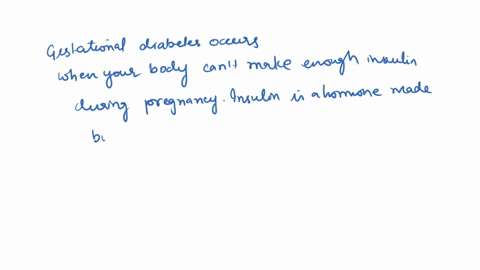 Gestational diabetes occurs
when your body can't make enough insulin
during pregnancy. Insulin is a hormone made
b